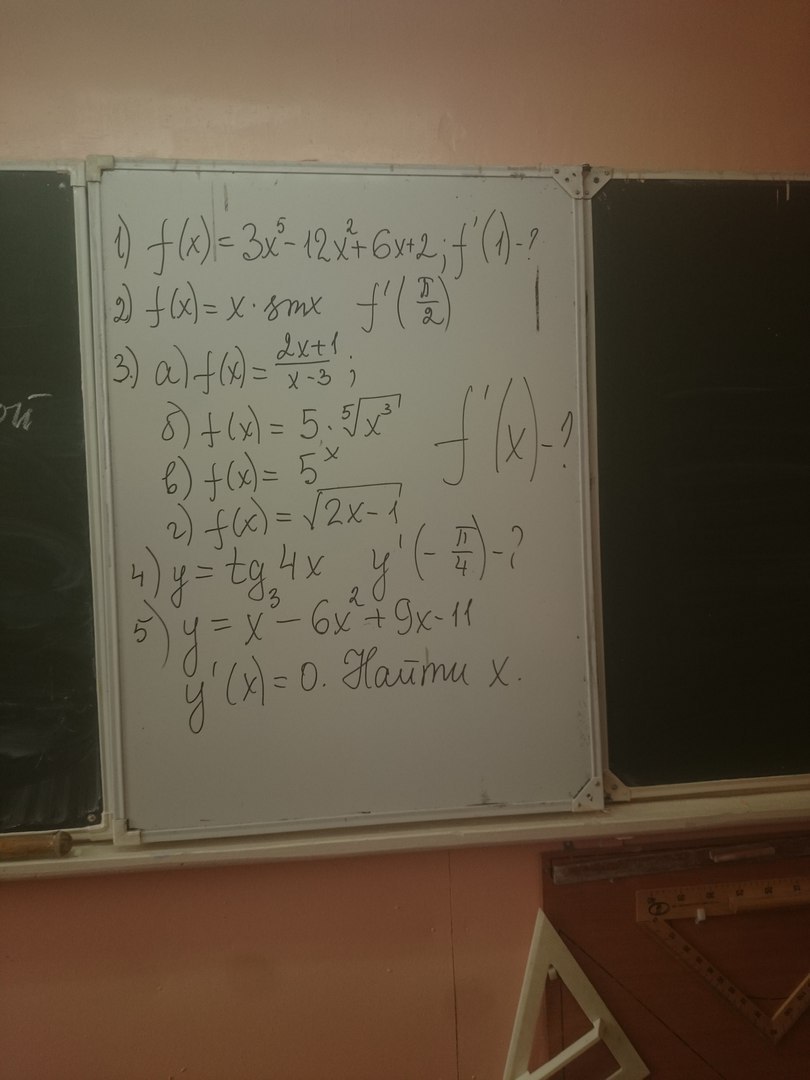 1) f(x) = 3x⁵ - 12x² + 6x + 2; f'(1) - ?
2) f(x) = x · sinx f'(π/2)
3.) а) f(x) = (2x+1)/(x-3);
б) f(x) = 5 · ⁵√x³ f'(x) - ?
в) f(x) = 5ˣ
г) f(x) = √(2x-1)
4) y = tg 4x y'(-π/4) - ?
5) y = x³ - 6x² + 9x - 11
y'(x) = 0. Найти x.
ой